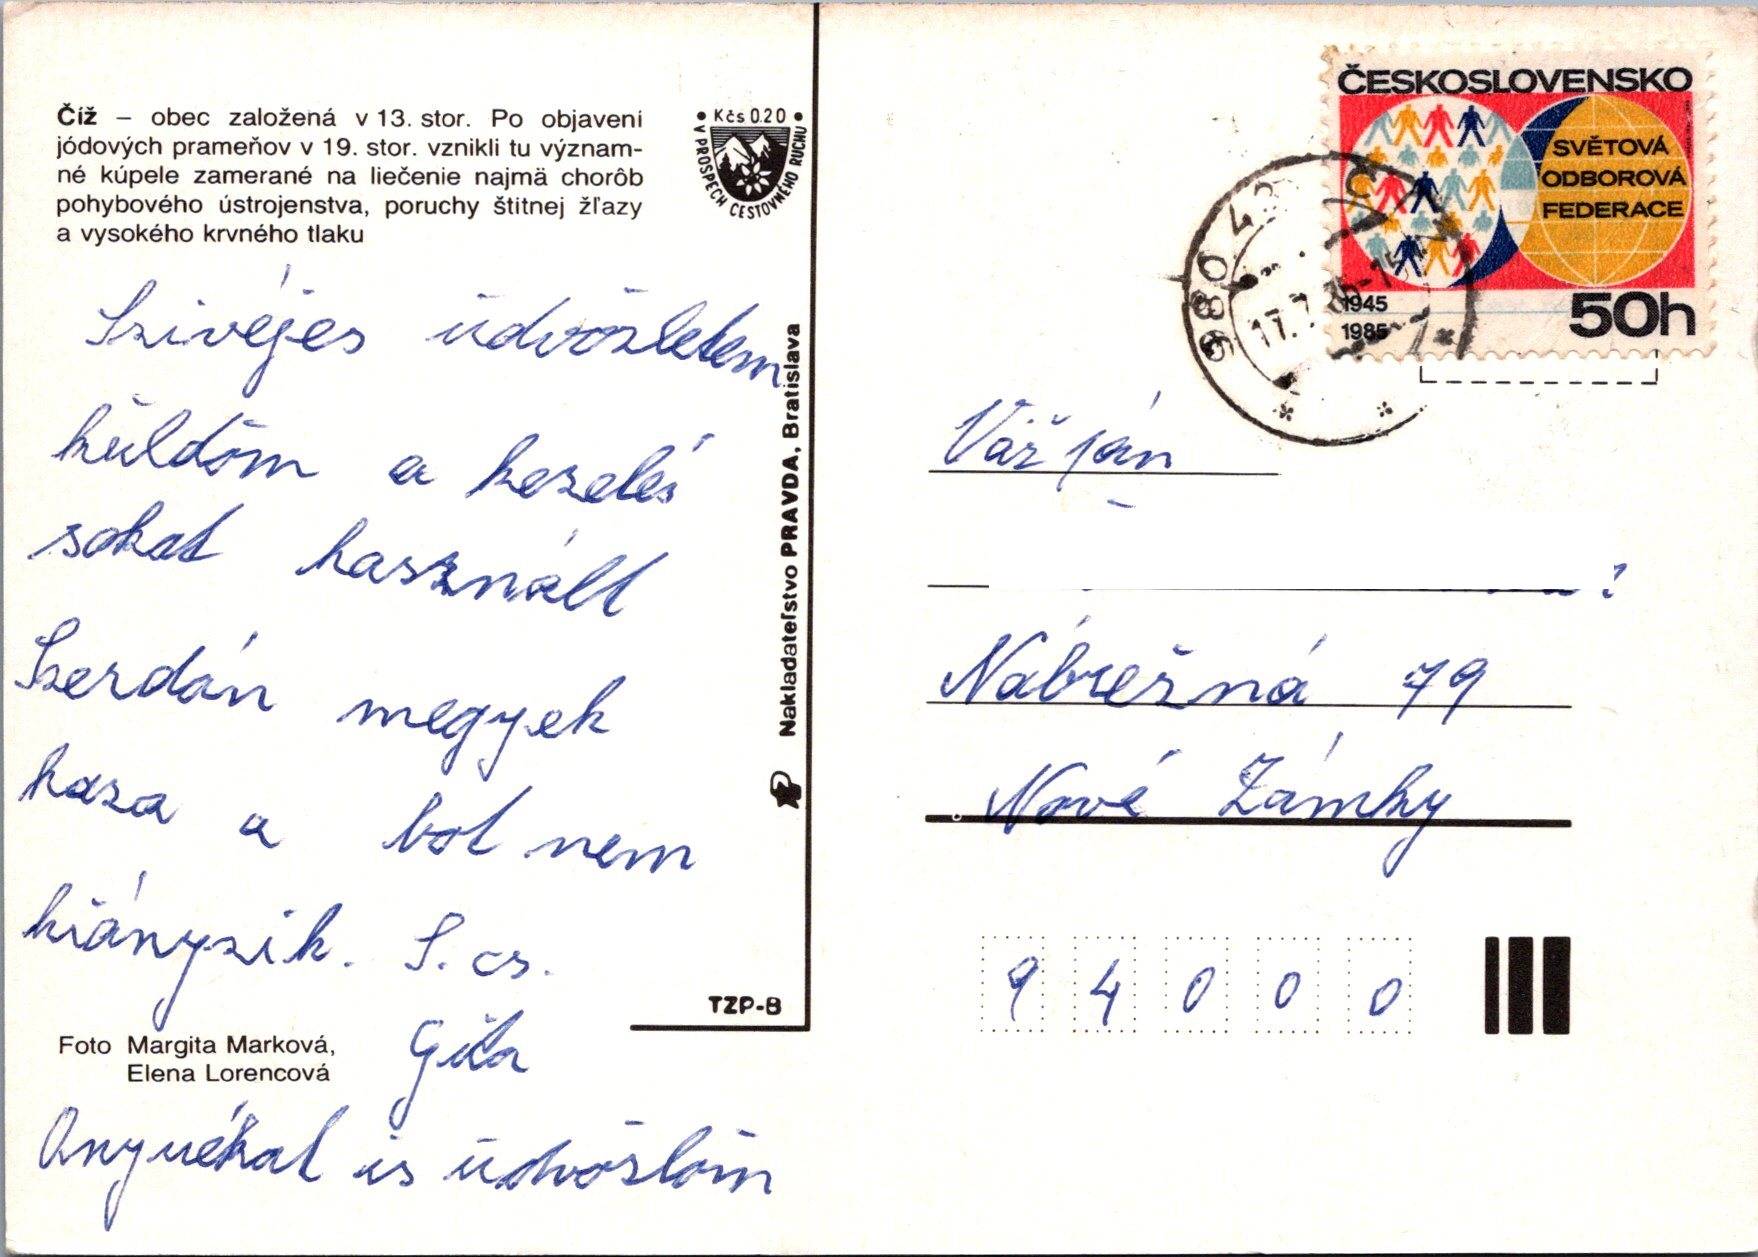 Číž – obec založená v 13. stor. Po objavení
jódových prameňov v 19. stor. vznikli tu význam-
né kúpele zamerané na liečenie najmä chorôb
pohybového ústrojenstva, poruchy štítnej žľazy
a vysokého krvného tlaku
• Kčs 0.20 •
V PROSPECH CESTOVNÉHO RUCHU
Szivéjes üdvözletem
küldöm a kezelés
sokat használt
Szerdán megyek
haza a bot nem
hiányzik. S. cs.
Gita
Anyuékat is üdvözlöm
Foto Margita Marková,
Elena Lorencová
TZP-B
Nakladateľstvo PRAVDA, Bratislava
ČESKOSLOVENSKO
SVĚTOVÁ
ODBOROVÁ
FEDERACE
1945
1985
50h
980 43
17.7.
Nábrežná 79
Nové Zámky
94000